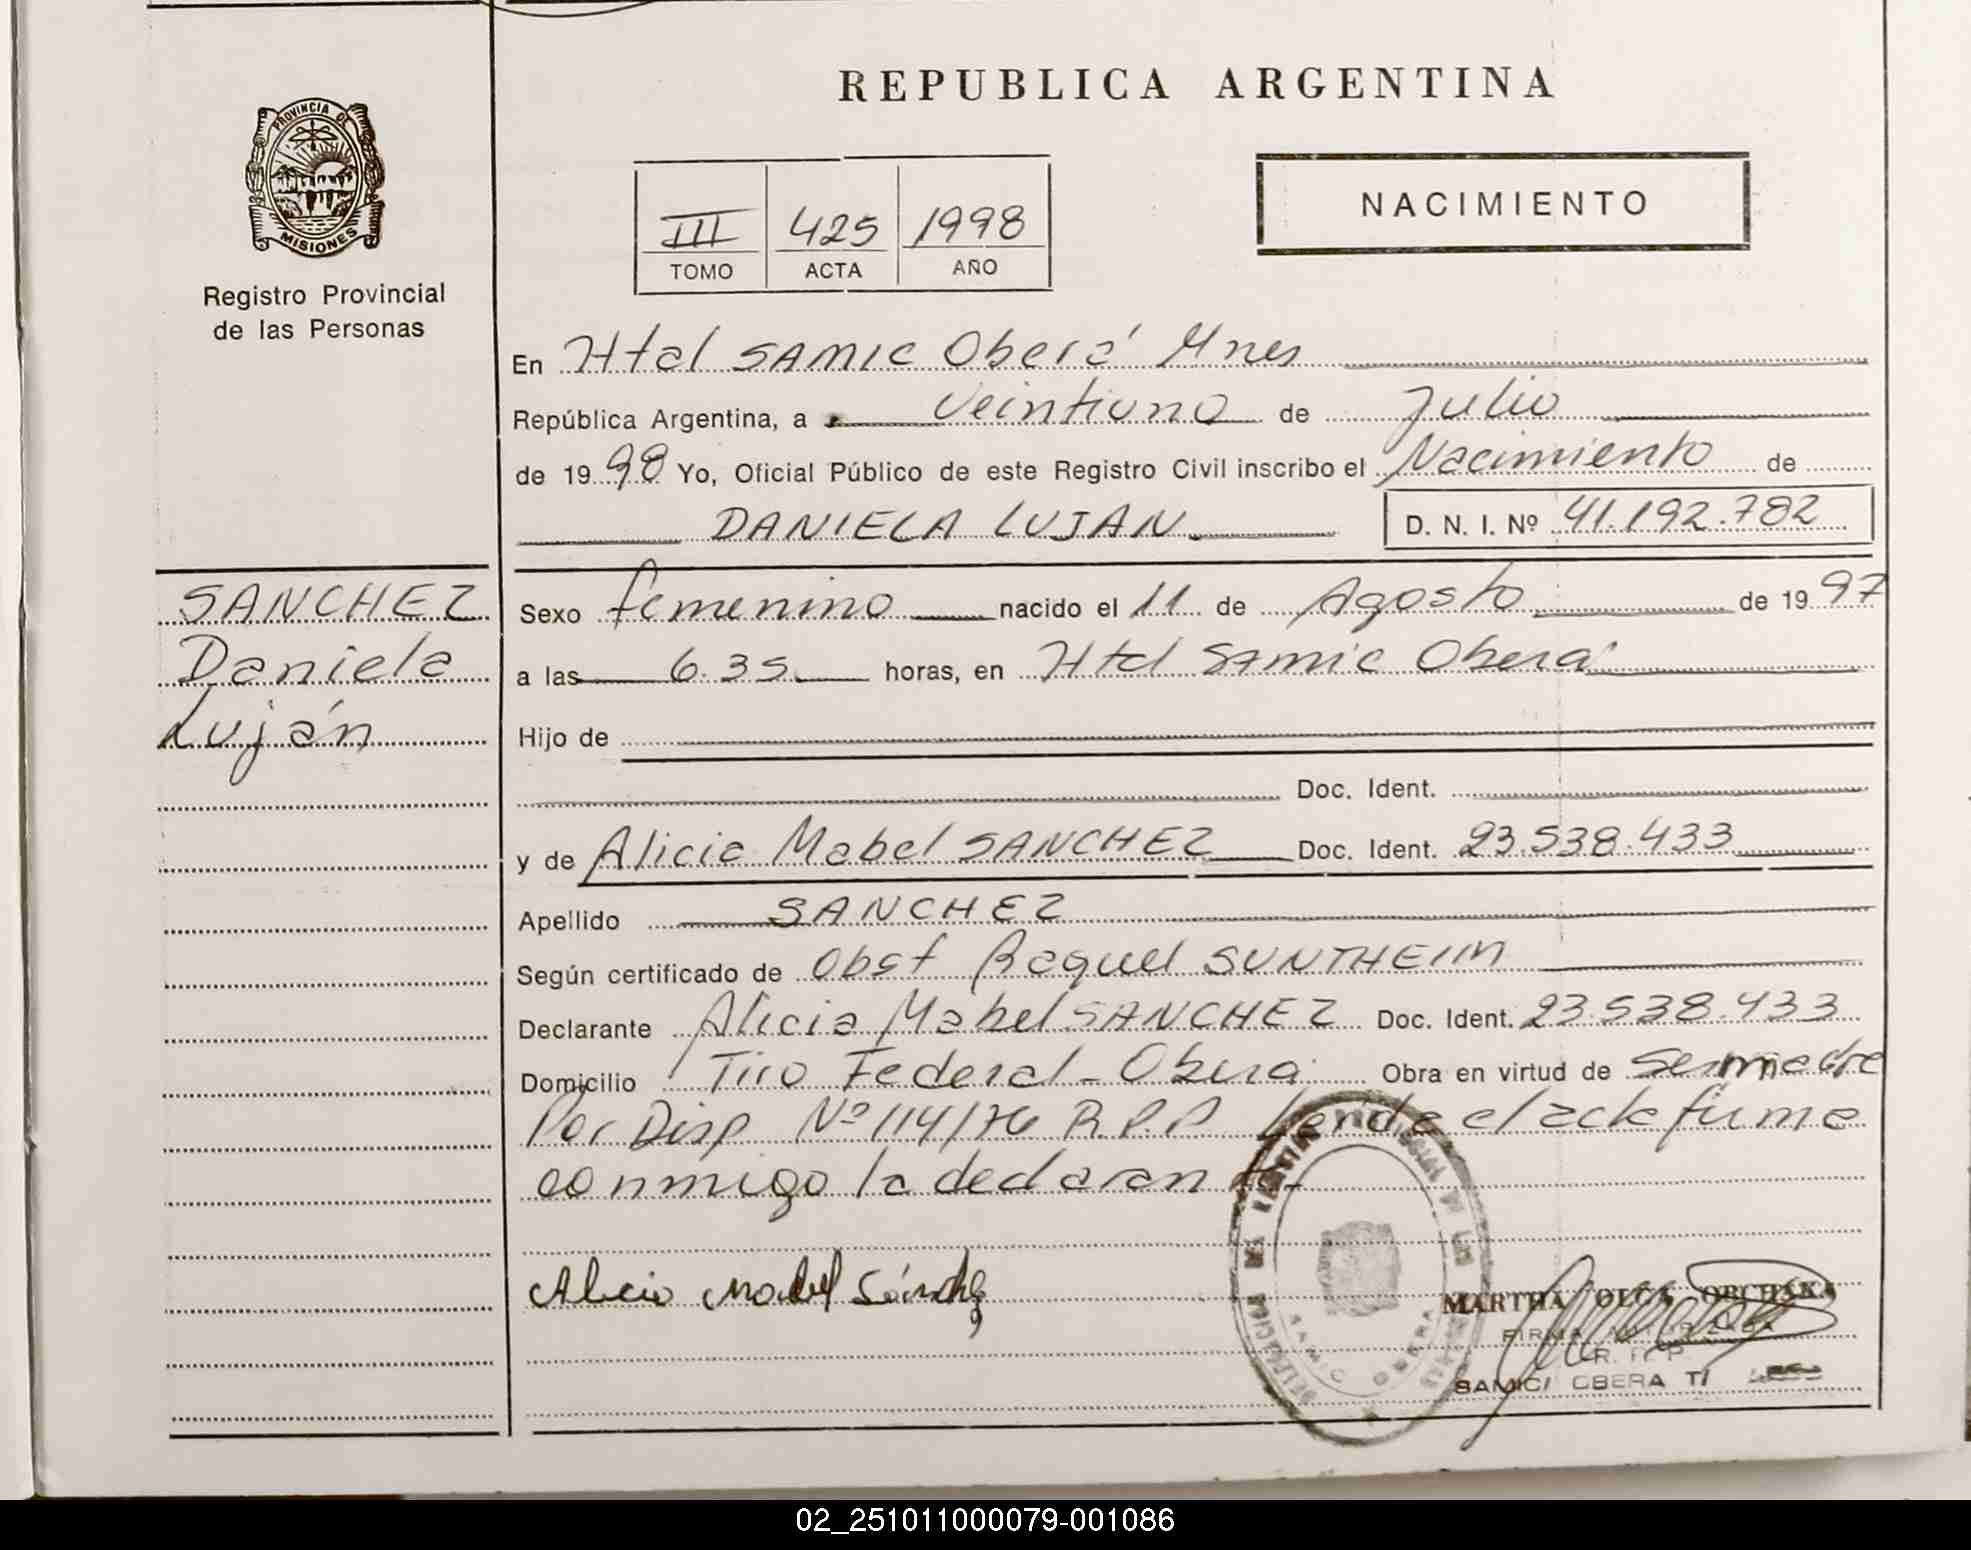 REPUBLICA ARGENTINA
PROVINCIA DE
MISIONES
Registro Provincial
de las Personas
III 425 1998
TOMO ACTA AÑO
NACIMIENTO
En Htal SAMIC Oberá Mnes
República Argentina, a veintiuno de Julio
de 19 98 Yo, Oficial Público de este Registro Civil inscribo el Nacimiento de
DANIELA LUJAN D. N. I. Nº 41.192.782
SANCHEZ
Daniela
Luján
Sexo femenino nacido el 11 de Agosto de 19 97
a las 6.35 horas, en Htal Samic Oberá
Hijo de
Doc. Ident.
y de Alicia Mabel SANCHEZ Doc. Ident. 23.538.433
Apellido SANCHEZ
Según certificado de Obst Raquel SUNTHEIM
Declarante Alicia Mabel SANCHEZ Doc. Ident. 23.538.433
Domicilio Tiro Federal - Oberá Obra en virtud de ser madre
Por Disp Nº 114/76 R.P.P. Leida el acta firma
conmigo la declarante
Alicia Mabel Sánchez
SAMIC OBERA
MARTHA OLGA
FIRMA AUTORIZADA
SAMIC/ OBERA
02_251011000079-001086